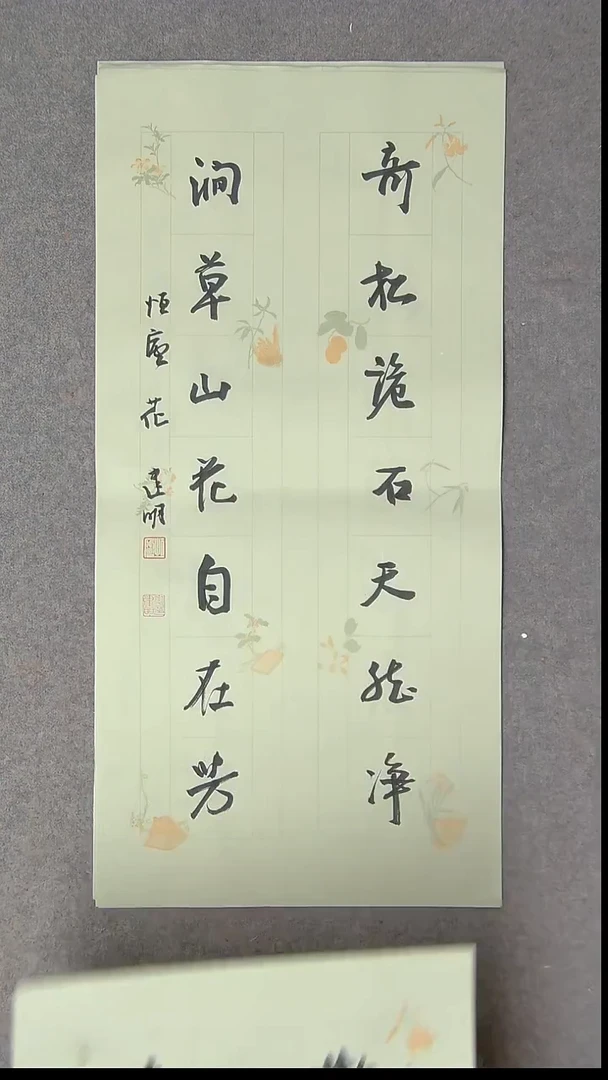 奇松诡石天然净
涧草山花自在芳
恒庐 花建明